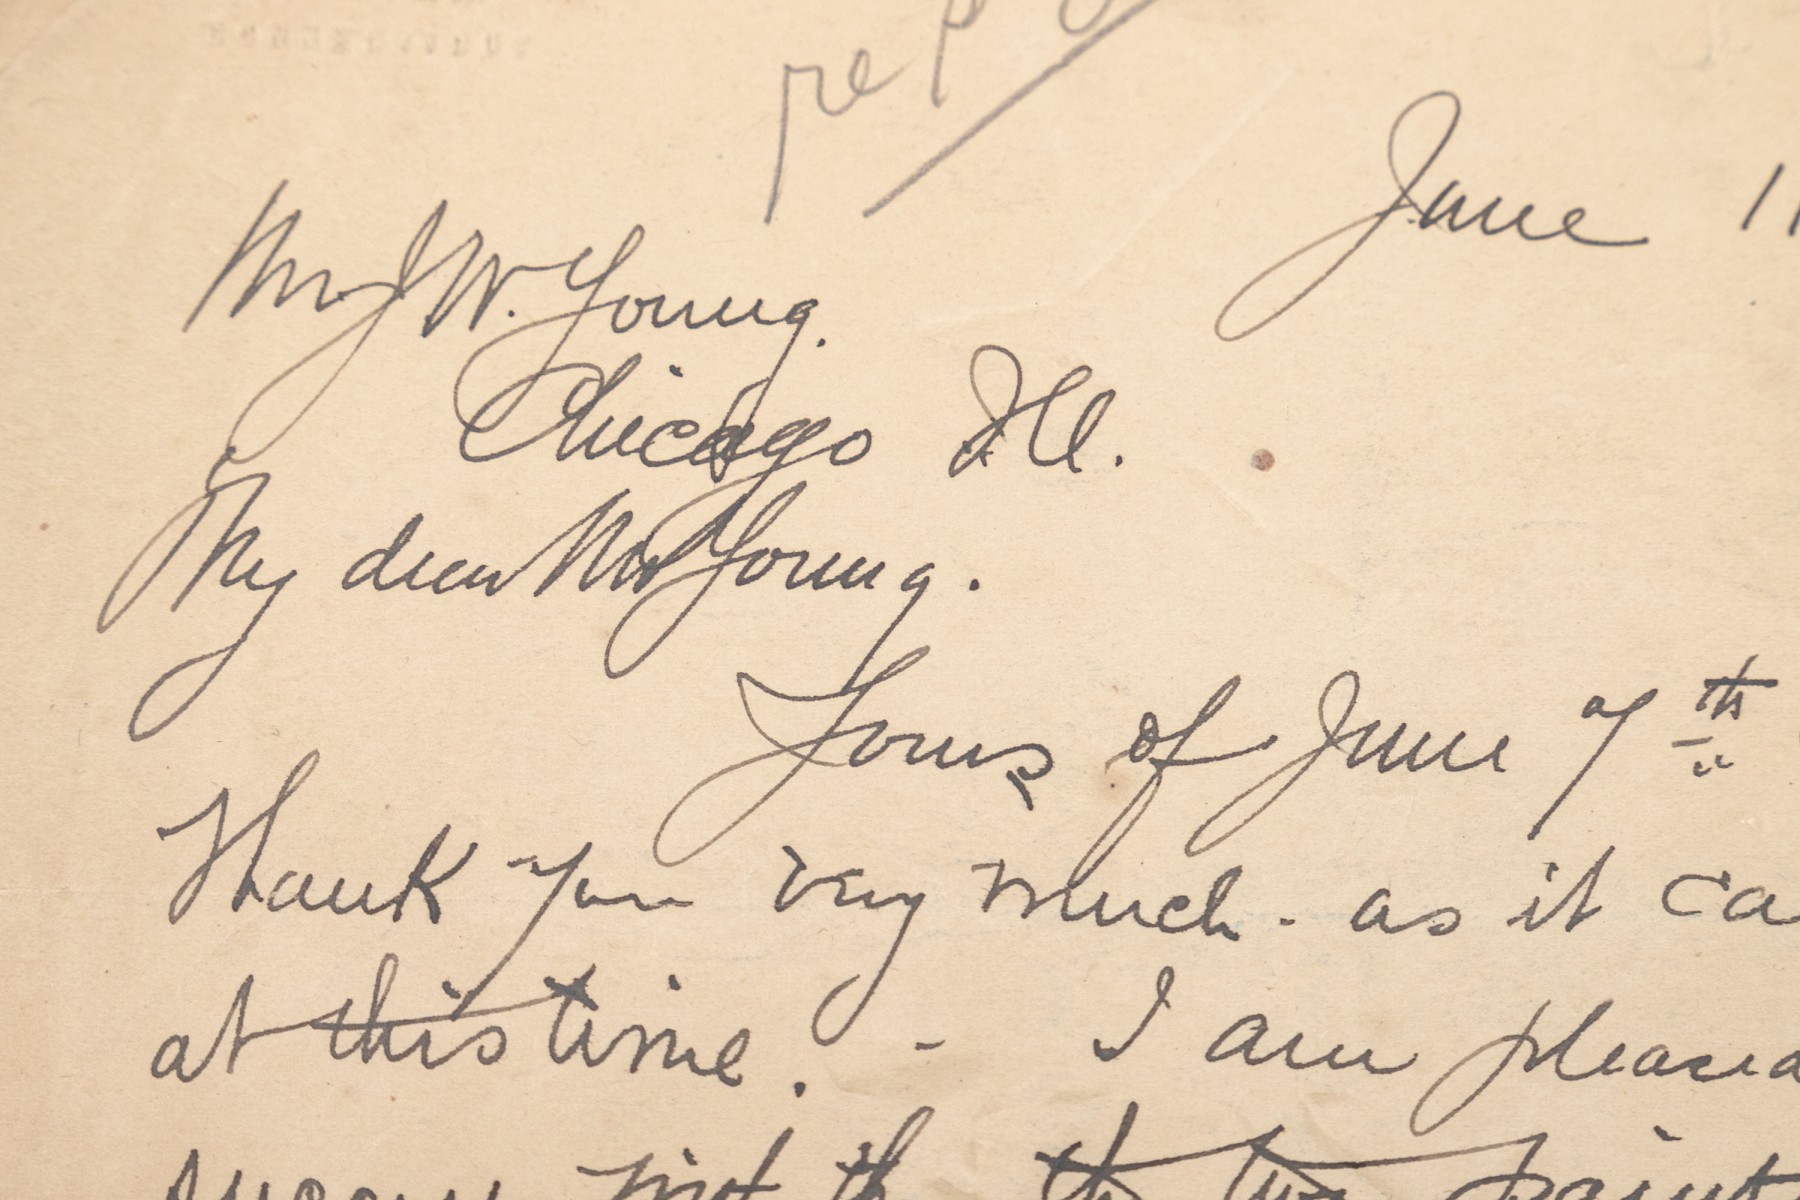 June 11
Mr J W. Young.
Chicago Ill.
My dear Mr Young.
Yours of June 7th
Thank you very much - as it ca
at this time. - I am pleased
the two paint